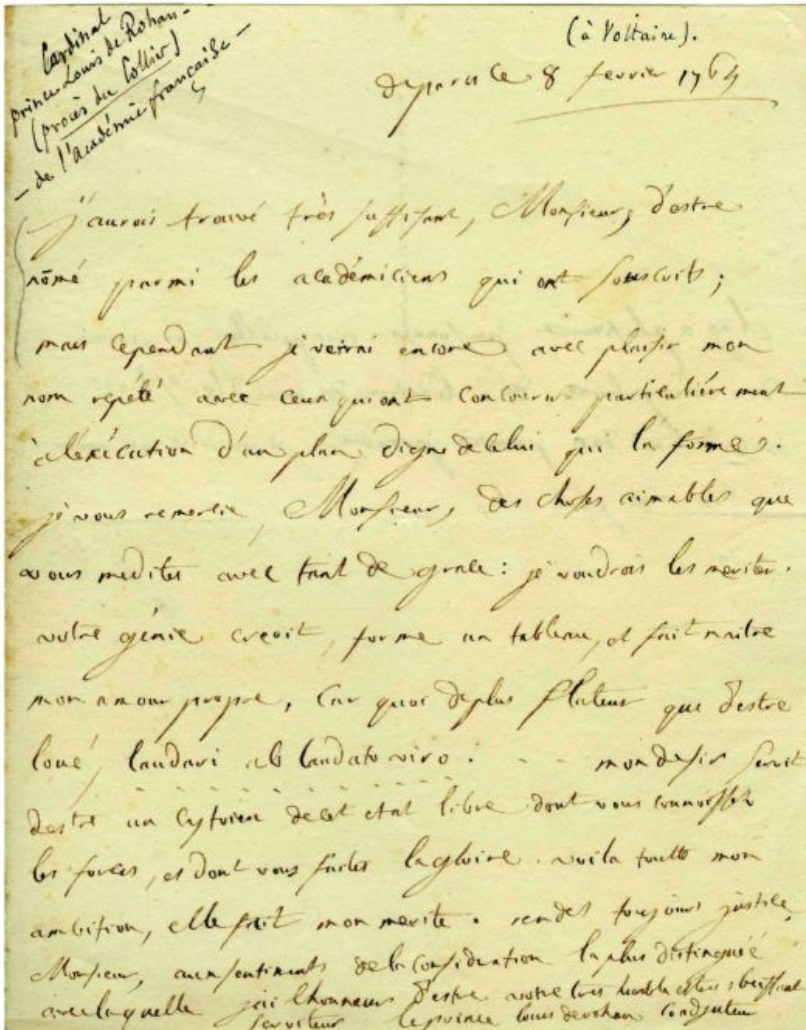 Cardinal
prince Louis de Rohan -
(procès du Collier)
- de l'Académie française -
(à Voltaire).
de paris ce 8 fevrier 1764
j'aurois trouvé très suffisant, Monsieur, d'estre
nōmé parmi les académiciens qui ont souscrits ;
mais cependant je verrai encore avec plaisir mon
nom repété avec ceux qui ont concouru particuliérement
à l'exécution d'un plan digne de celui qui la formé.
je vous remercie, Monsieur, des choses aimables que
vous me dites avec tant de grace : je voudrois les meriter.
votre génie creoit, forme un tableau, et fait naitre
mon amour propre, car quoi de plus flateur que d'estre
loué, laudari ab laudato viro. . . mon desir seroit
d'estre un citoien de cet etat libre dont vous connoissez
les forces, et dont vous faites la gloire. voila toutte mon
ambition, elle fait mon merite. rendez toujours justice,
Monsieur, aux sentiments de la consideration la plus distinguée
avec laquelle j'ai l'honneur d'estre votre tres humble et tres obeissant
serviteur le prince louis de rohan coadjuteur